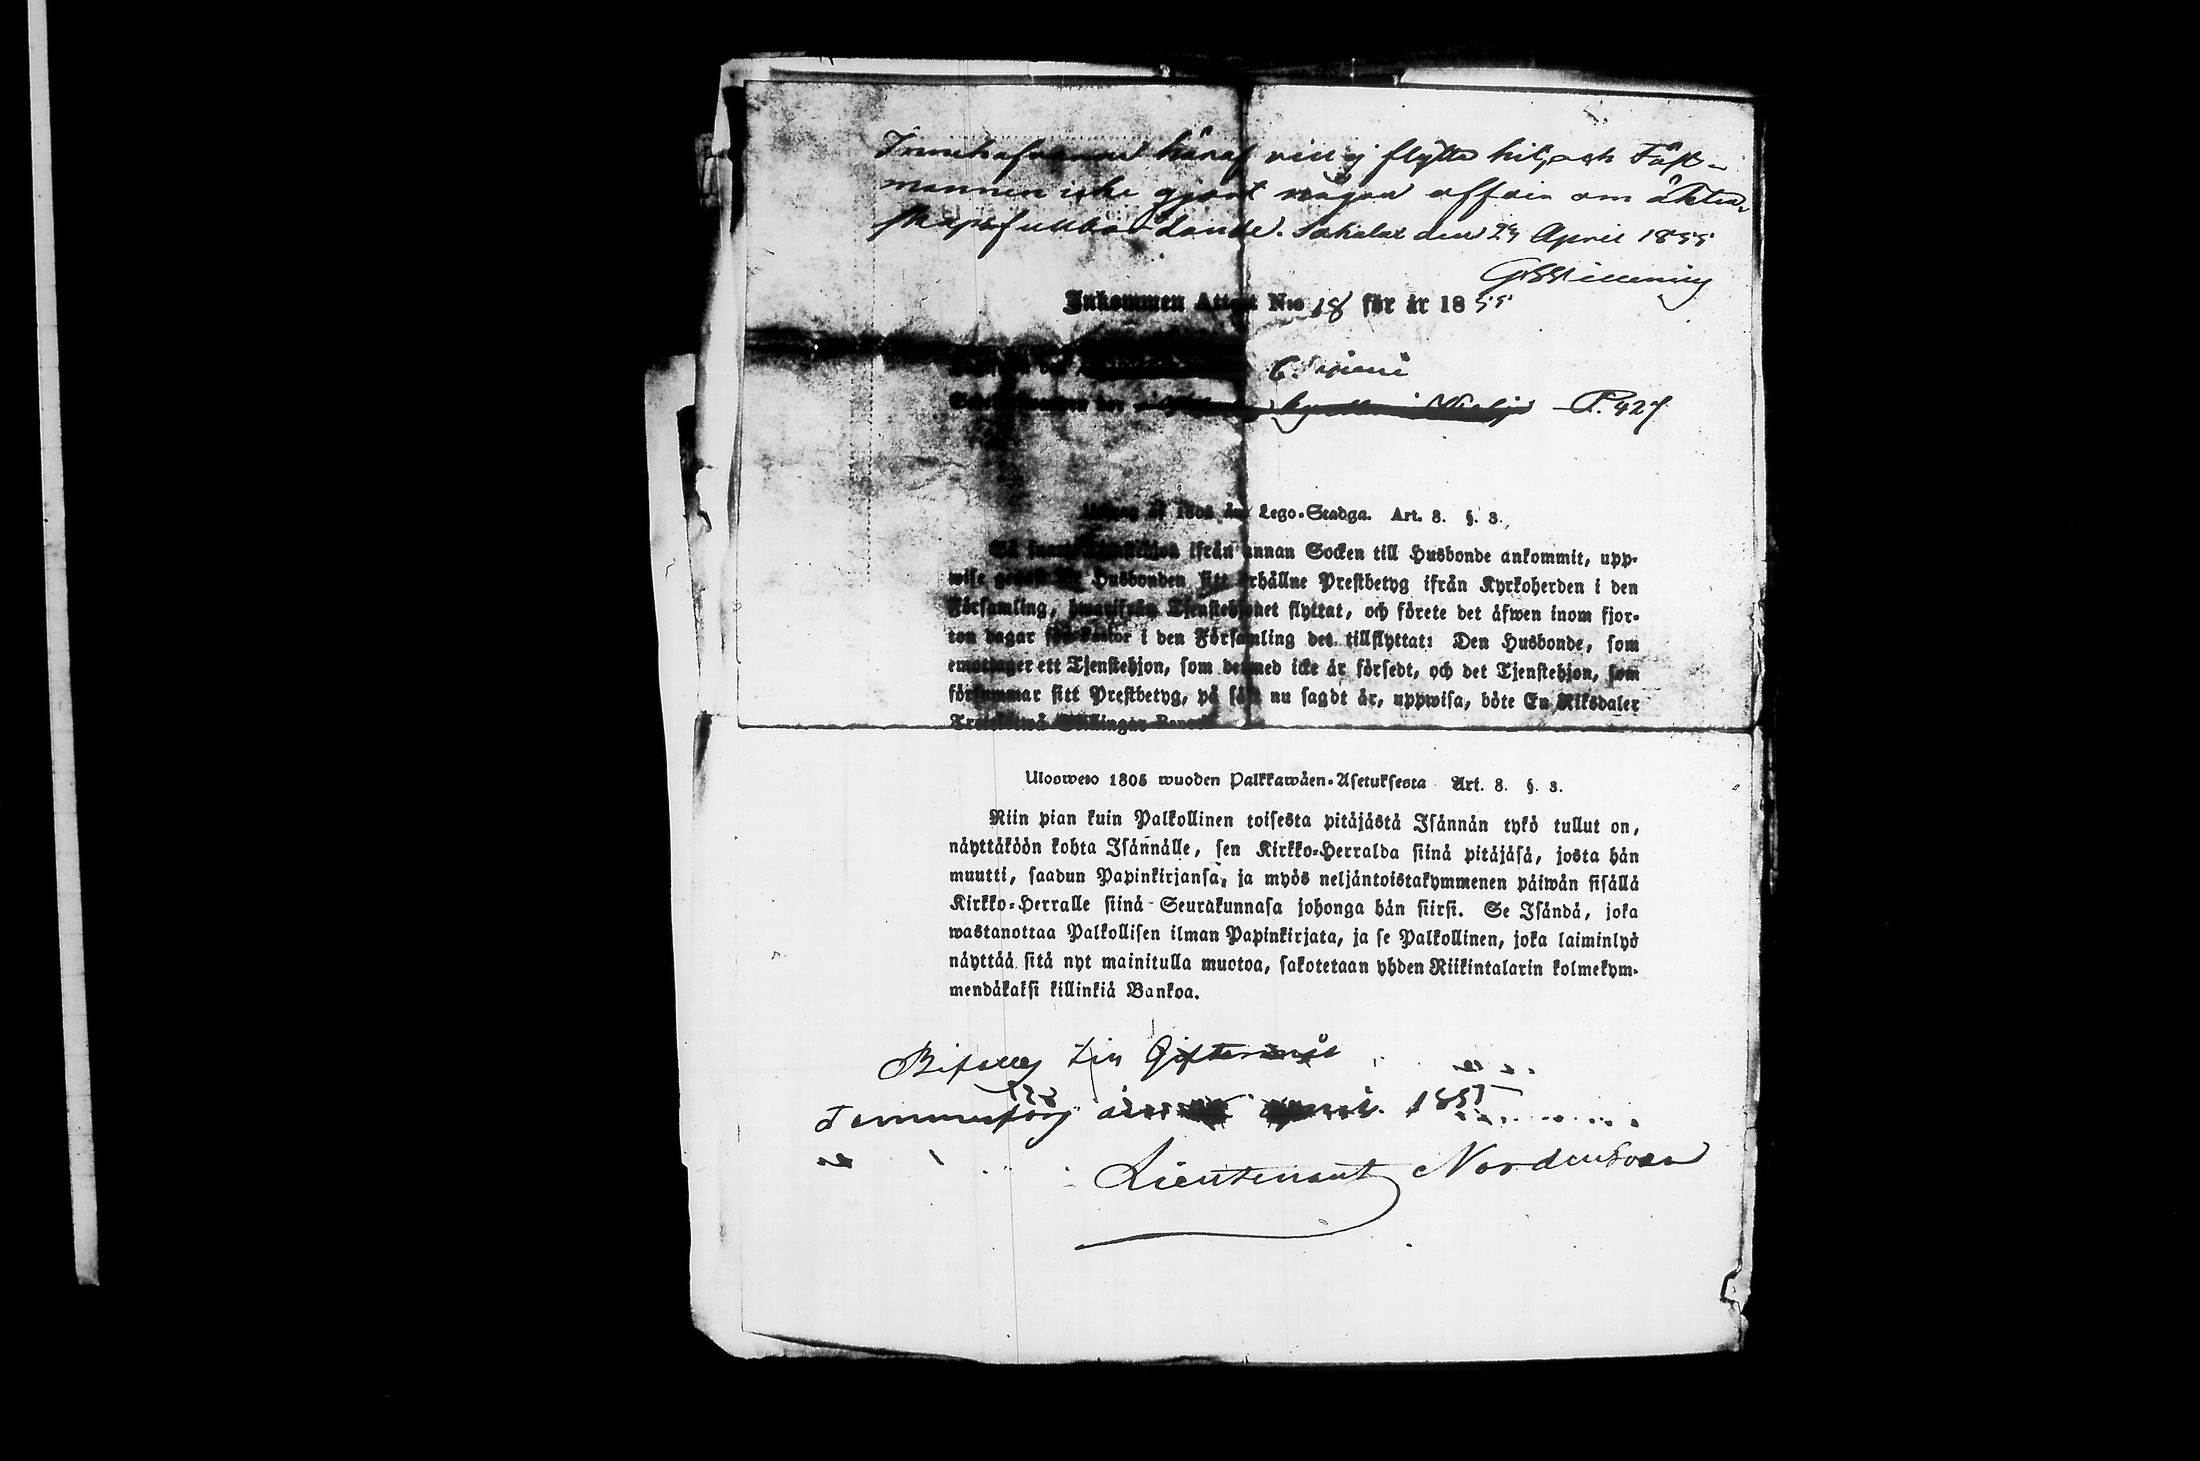 Innehafvaren häraf vill ej flytta hit, och Fäst-
mannen icke gjort någon affair om äkten-
skapsfullbordande. Sahalax den 29 April 1855
Inkommen Attest N:o 18 för år 1855
P. 427
Utdrag af 1805 års Lego-Stadga. Art. 8. §. 3.
Så snart Tjenstehjon ifrån annan Socken till Husbonde ankommit, upp-
wise genast för Husbonden sitt erhållne Prestbetyg ifrån Kyrkoherden i den
Församling, hwarifrån Tjenstehjonet flyttat, och förete det äfwen inom fjor-
ton dagar för Pastor i den Församling det tillflyttat: Den Husbonde, som
emottager ett Tjenstehjon, som dermed icke är försedt, och det Tjenstehjon, som
försummar sitt Prestbetyg, på sätt nu sagdt är, uppwisa, böte En Riksdaler
Trettiotwå Skillingar Banco.
Ulosweto 1805 wuoden Palkkawäen-Asetuksesta Art. 8. §. 3.
Niin pian kuin Palkollinen toisesta pitäjästä Isännän tykö tullut on,
näyttäköön kohta Isännälle, sen Kirkko-Herralda siinä pitäjäsä, josta hän
muutti, saadun Papinkirjansa, ja myös neljäntoistakymmenen päiwän sisällä
Kirkko-Herralle siinä Seurakunnasa johonga hän siirsi. Se Isändä, joka
wastanottaa Palkollisen ilman Papinkirjata, ja se Palkollinen, joka laiminlyö
näyttää sitä nyt mainitulla muotoa, sakotetaan yhden Riikintalarin kolmekym-
mendäkaksi killinkiä Bankoa.
Bifalles till Giftermål
Tammerfors 1855
Lieutenant Nordensvan